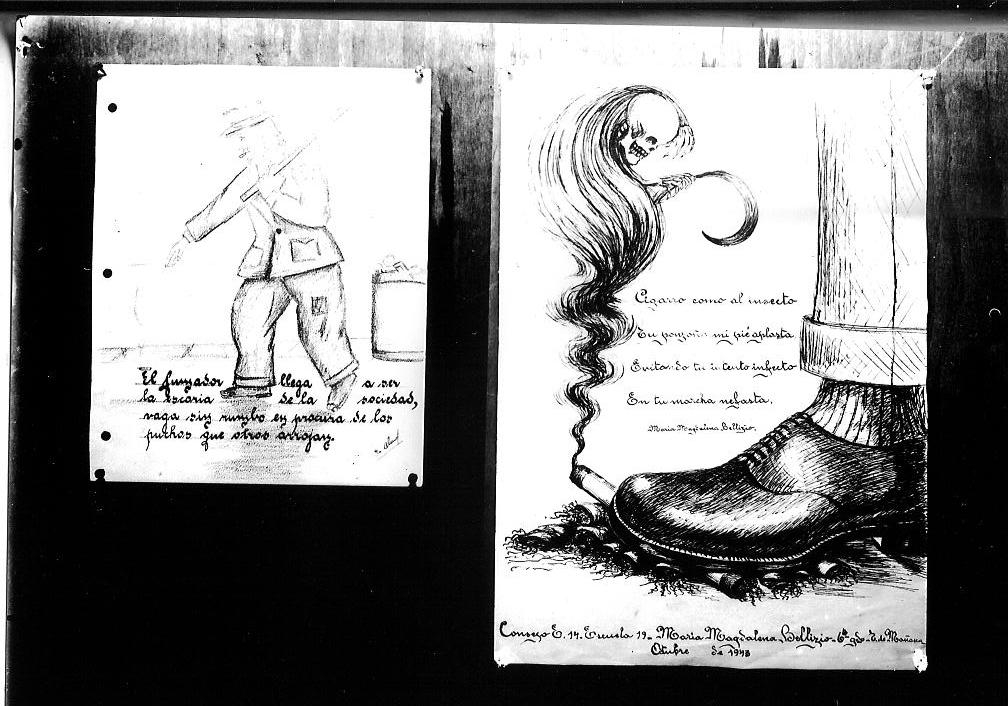 El fumador llega a ser
la escoria de la sociedad,
vaga sin rumbo en procura de los
puchos que otros arrojan.
Cigarro como al insecto
Tu ponzoña mi pié aplasta
Evitando tu intento infecto
En tu marcha nefasta.
Maria Magdalena Bellizio.
Consejo E. 14. Escuela 19- Maria Magdalena Bellizio- 6º gdo- T. de Mañana
Octubre de 1943